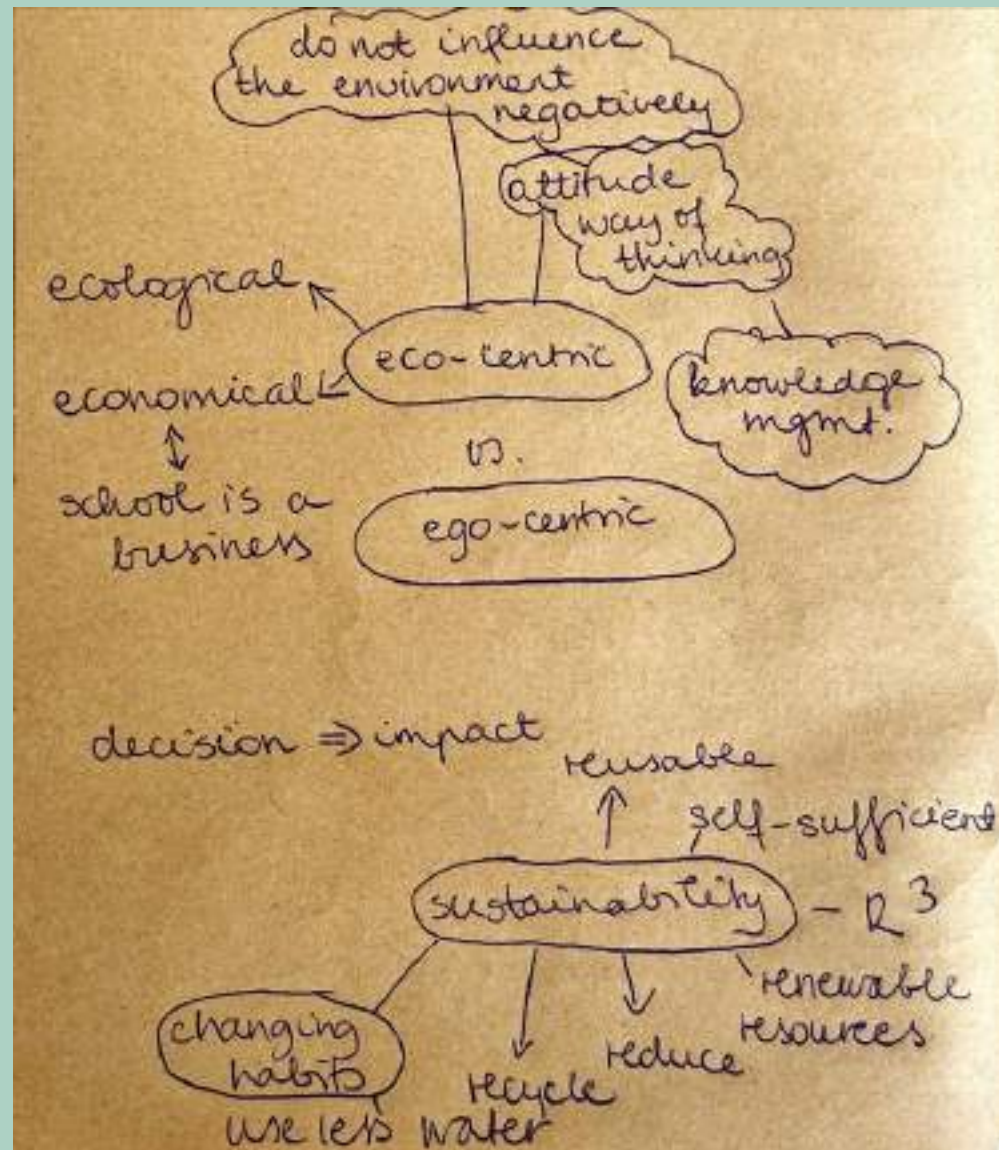 do not influence
the environment
negatively
attitude
way of
thinking
ecological
eco-centric
economical
knowledge
mgmt.
vs.
school is a
business
ego-centric
decision ⇒ impact
reusable
self-sufficient
sustainability - R³
renewable
resources
changing
habits
reduce
recycle
use less water